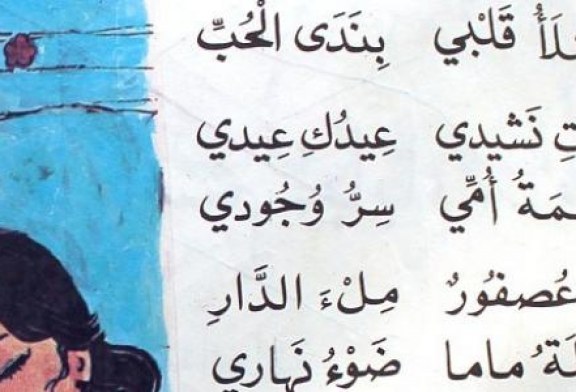 قَلْبي بِنَدَى الْحُبِّ
نَشيدي عِيدُكِ عِيدي
أُمِّي سِرُّ وُجُودي
عُصفُورٌ مِلْءَ الدَّارِ
ماما ضَوْءُ نَهاري